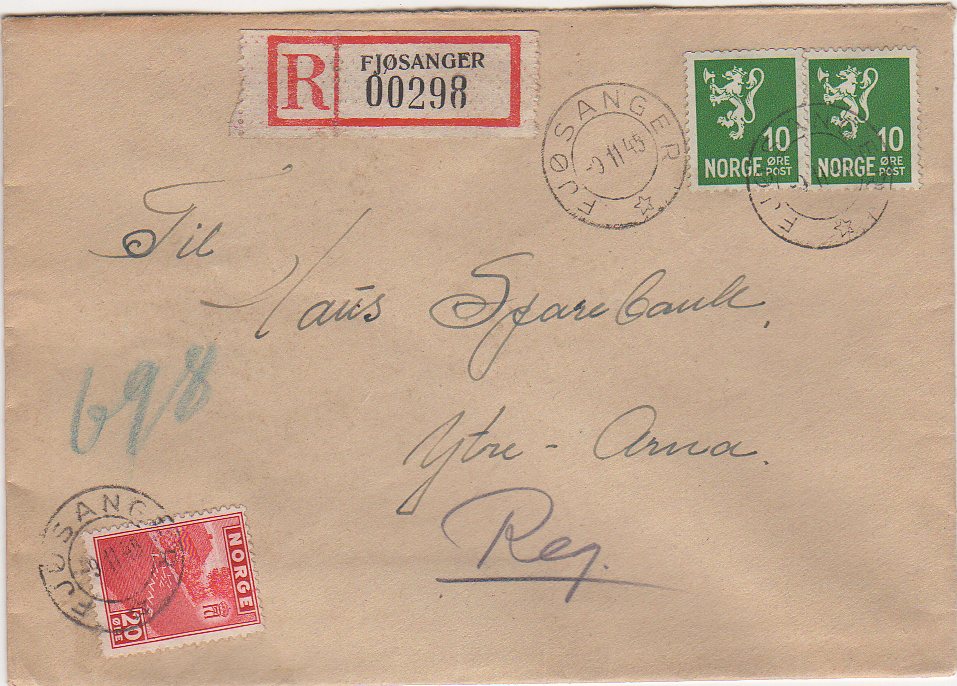 R
FJØSANGER
00298
FJØSANGER
-9.11.45
10
NORGE ØRE
POST
10
NORGE ØRE
POST
FJØSANGER
Til
Haus Sparebank,
698
Ytre - Arna.
Reg.
FJØSANGER
-9.11.45
NORGE
20
ØRE